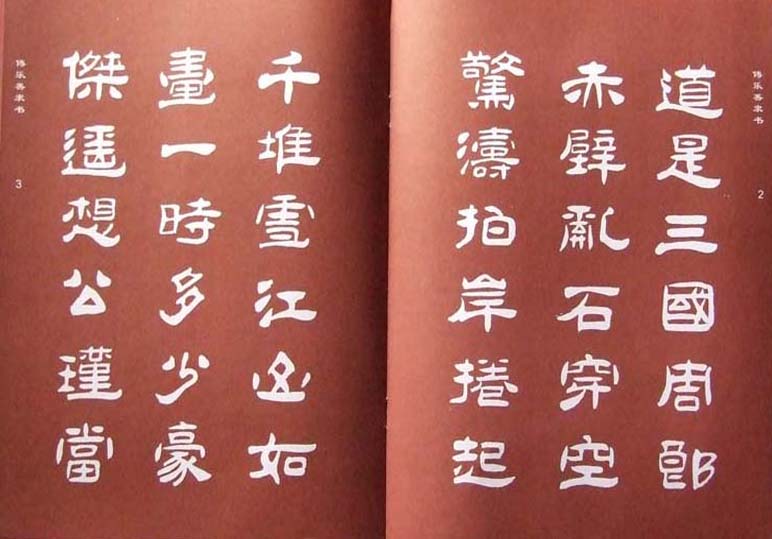 傅乐善隶书
2
道是三國周郎
赤壁亂石穿空
驚濤拍岸捲起
千堆雪江山如
畫一時多少豪
傑遥想公瑾當
傅乐善隶书
3